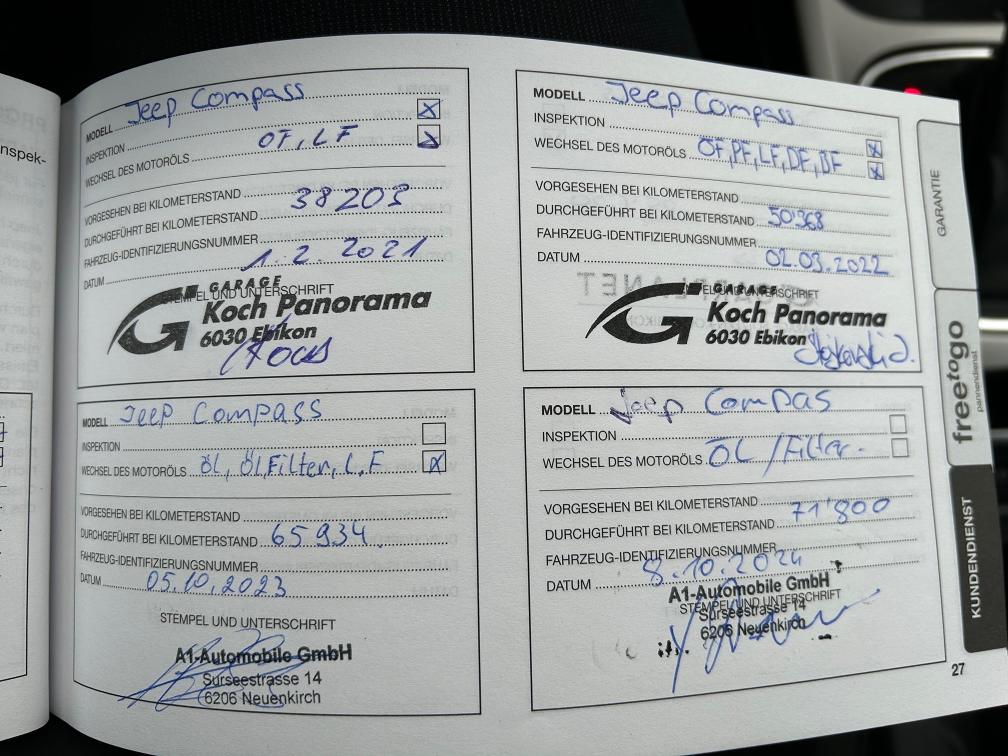 nspek-
MODELL Jeep Compass
INSPEKTION
WECHSEL DES MOTORÖLS OF, LF
VORGESEHEN BEI KILOMETERSTAND
DURCHGEFÜHRT BEI KILOMETERSTAND 38203
FAHRZEUG-IDENTIFIZIERUNGSNUMMER
DATUM 1. 2. 2021
STEMPEL UND UNTERSCHRIFT
GARAGE
Koch Panorama
6030 Ebikon
MODELL Jeep Compass
INSPEKTION
WECHSEL DES MOTORÖLS OF, PF, LF, DF, BF
VORGESEHEN BEI KILOMETERSTAND
DURCHGEFÜHRT BEI KILOMETERSTAND 50'368
FAHRZEUG-IDENTIFIZIERUNGSNUMMER
DATUM 02.03.2022
STEMPEL UND UNTERSCHRIFT
GARAGE
Koch Panorama
6030 Ebikon
MODELL Jeep Compass
INSPEKTION
WECHSEL DES MOTORÖLS öl, ölFilter, L.F
VORGESEHEN BEI KILOMETERSTAND
DURCHGEFÜHRT BEI KILOMETERSTAND 65934
FAHRZEUG-IDENTIFIZIERUNGSNUMMER
DATUM 05.10.2023
STEMPEL UND UNTERSCHRIFT
A1-Automobile GmbH
Surseestrasse 14
6206 Neuenkirch
MODELL Jeep Compas
INSPEKTION
WECHSEL DES MOTORÖLS ÖL / Filter.
VORGESEHEN BEI KILOMETERSTAND
DURCHGEFÜHRT BEI KILOMETERSTAND 71'800
FAHRZEUG-IDENTIFIZIERUNGSNUMMER
DATUM 8.10.2024
STEMPEL UND UNTERSCHRIFT
A1-Automobile GmbH
Surseestrasse 14
6206 Neuenkirch
GARANTIE
freetogo
pannendienst
KUNDENDIENST
27